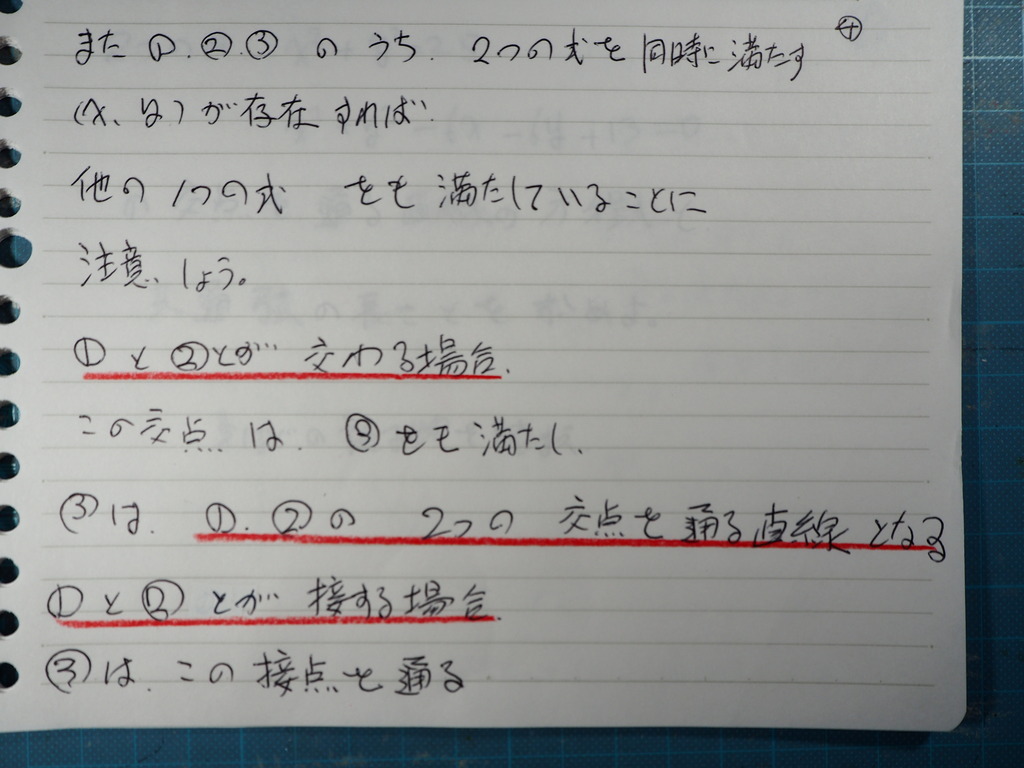 ④
また ①.②.③ の うち. 2つの式を 同時に満たす
(x、y) が 存在 すれば
他の 1つの式 をも 満たしていることに
注意、しょう。
①と②とが 交わる場合.
この交点 は. ③をも 満たし.
③は. ①.②の 2つの 交点を 通る直線 となる
①と②とが 接する場合.
③は. この 接点を 通る